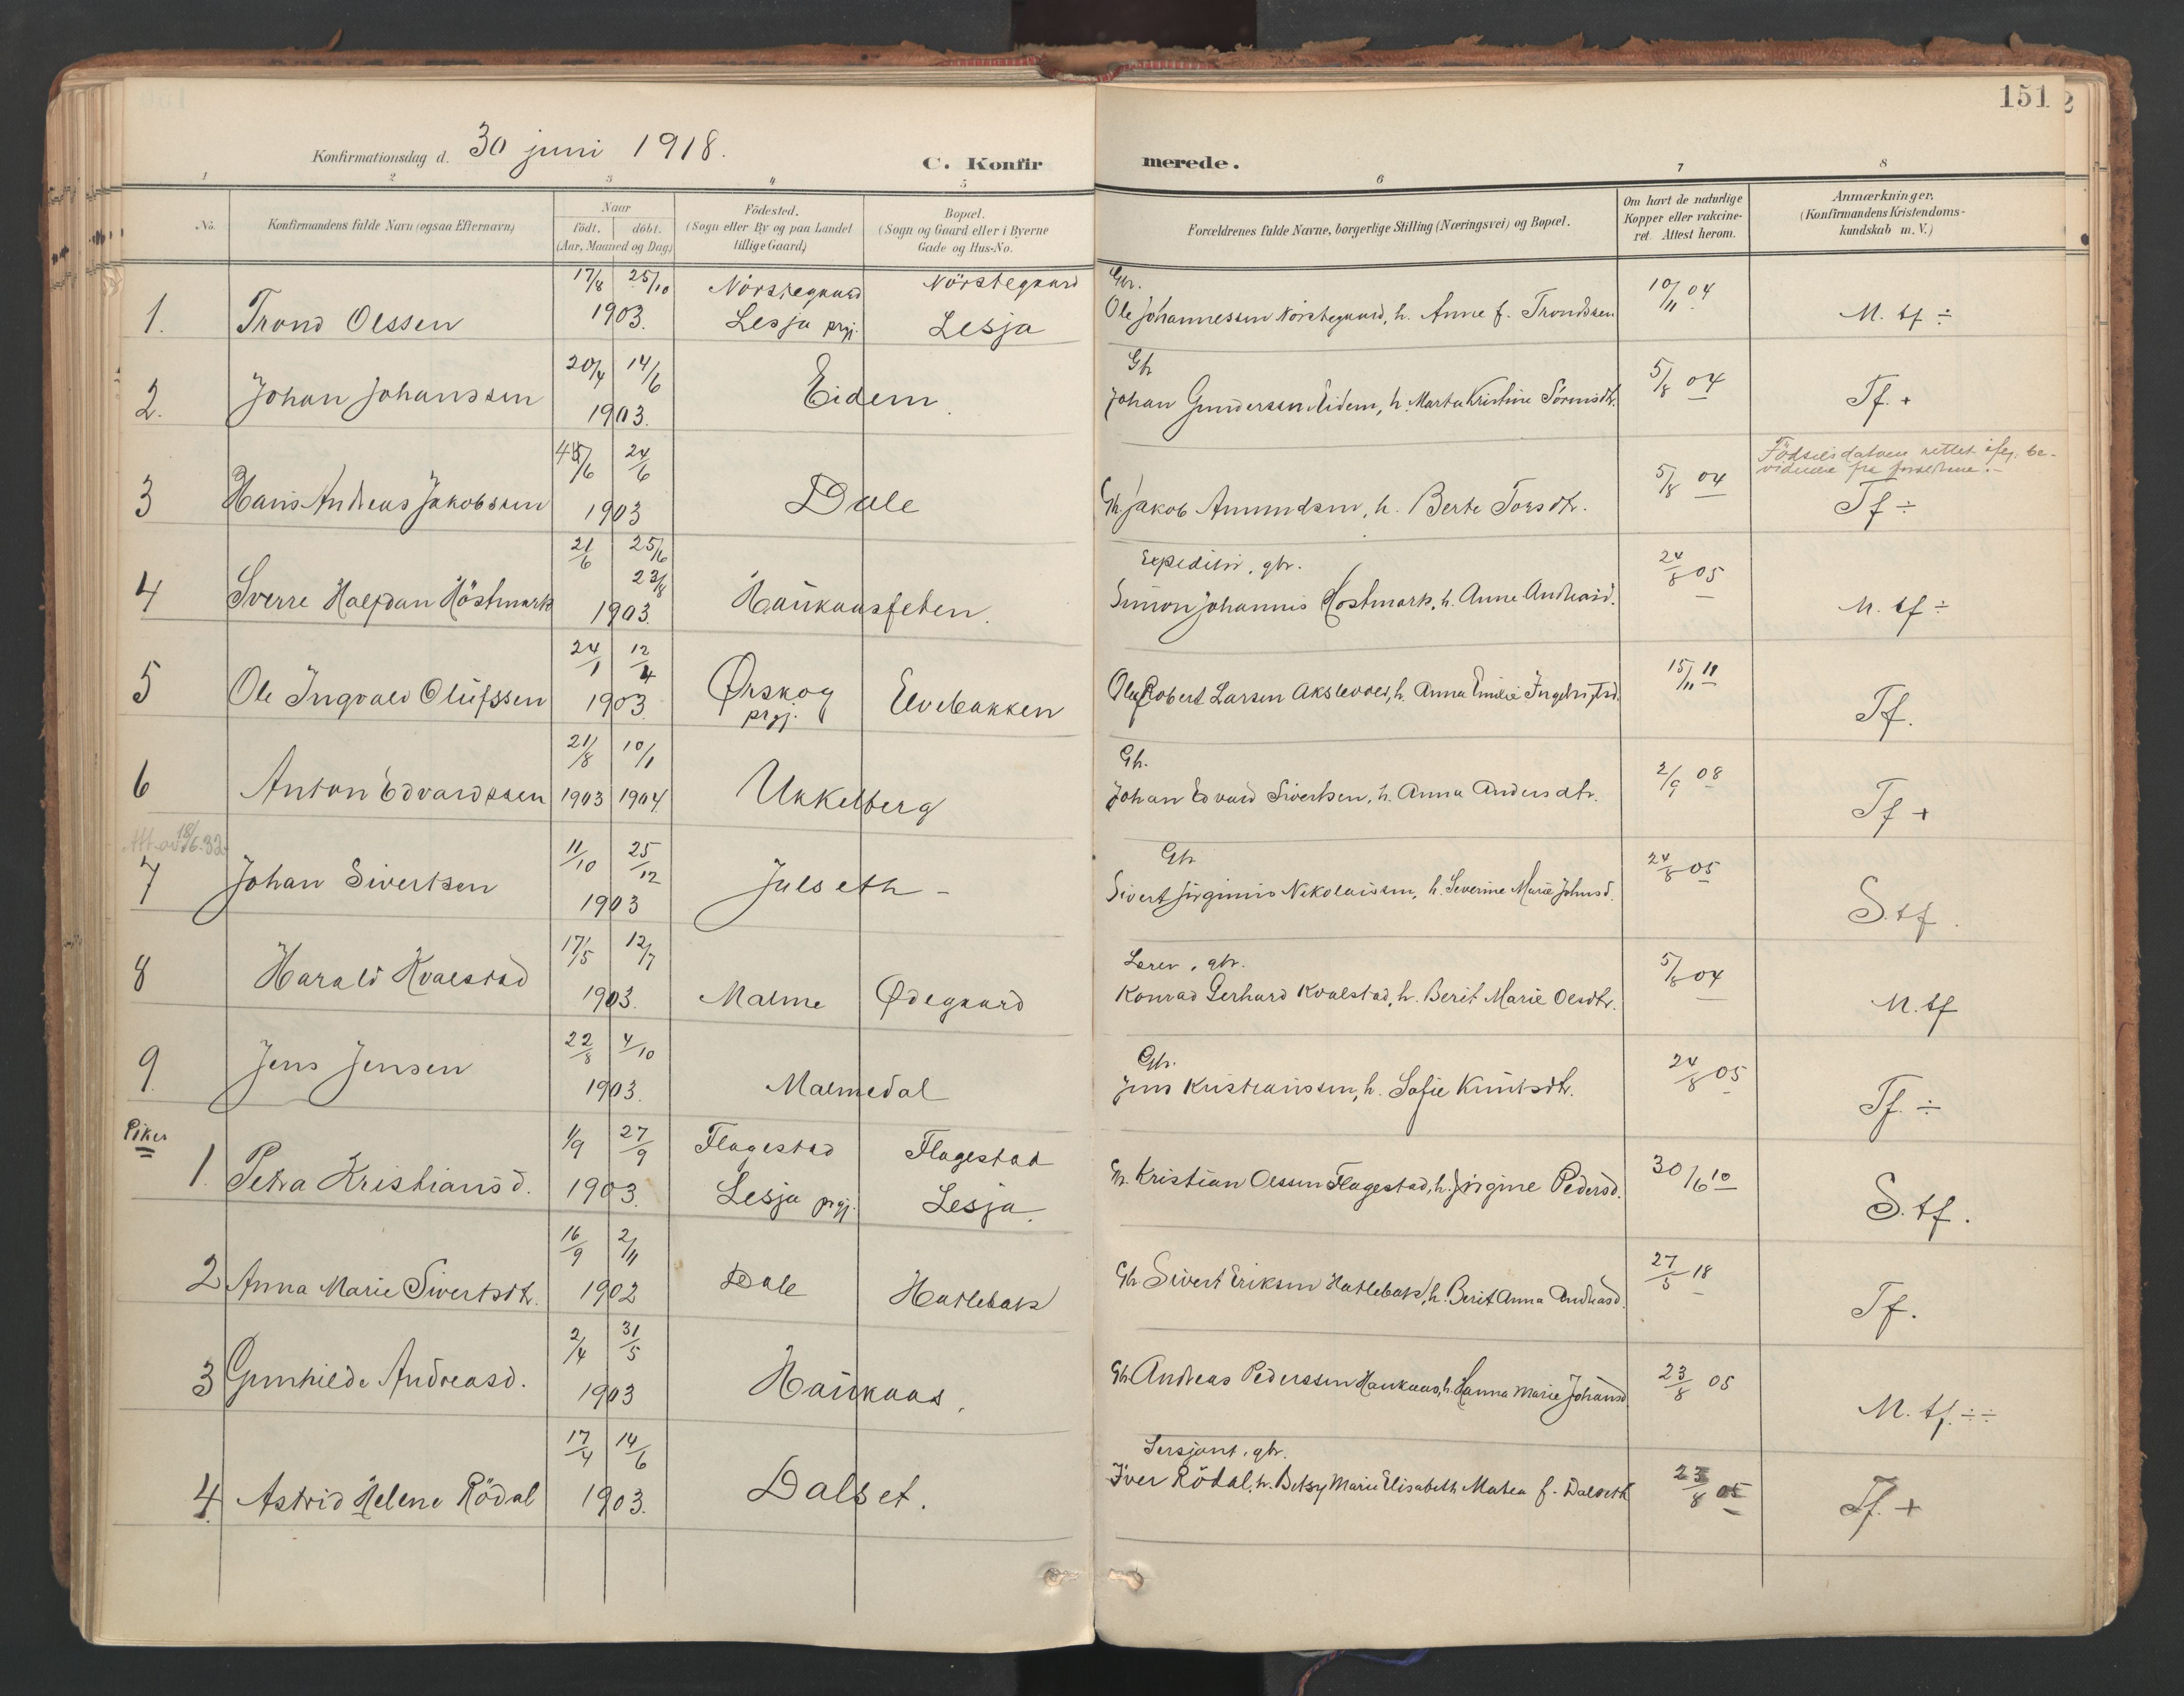 151
Konfirmationsdag d. 30 juni 1918.
C. Konfirmerede.
1 2 3 4 5 6 7 8
No. Konfirmandens fulde Navn (ogsaa Efternavn) Naar födt. döbt. (Aar, Maaned og Dag) Födested. (Sogn eller By og paa Landet tillige Gaard) Bopæl. (Sogn og Gaard eller i Byerne Gade og Hus-No. Forældrenes fulde Navne, borgerlige Stilling (Næringsvei) og Bopæl. Om havt de naturlige Kopper eller vakcineret. Attest herom. Anmærkninger. (Konfirmandens Kristendomskundskab m. V.)
17/8 25/10 Nörstegaard Nörstegaard Gbr. 10/11 04
1. Trond Olssen 1903. Lesja prgj. Lesja Ole Johannessen Nörstegaard, h. Anne f. Trondssen M. tf ÷
20/4 14/6 Gbr 5/8 04
2. Johan Johanssen 1903. Eidem. Johan Gunderssen Eidem, h. Marta Kristine Sörensdtr. Tf. +
5/6 24/6 5/8 04 Födselsdatoen rettet ifølg. be-
vidnelse fra forældrene.-
3 Hans Andreas Jakobssen 1903 Dale Gbr Jakob Amundsen, h. Berte Torsdtr. Tf ÷
21/6 25/6 Expeditör, gbr. 24/8 05
23/8
4 Sverre Halfdan Höstmark 1903. Haukaasfeten. Simon Johannes Hostmark, h. Anne Andreasd. M. tf ÷
24/1 12/4 15/11 11
5 Ole Ingvald Olufssen 1903 Ørskog prgj. Elvebakken Oluf Robert Larsen Akslevold, h. Anna Emilie Tf.
21/8 10/1 Gbr. 2/9 08
6 Anton Edvardssen 1903 1904 Ukkelberg Johan Edvard Sivertsen, h. Anna Andersdtr. Tf +
Att. av 18/6.32
11/10 25/12 Gbr 24/8 05
7 Johan Sivertsen 1903 Julseth - Sivert Jörginius Nikolaissen, h. Severine Marie Johnsd. S. tf.
17/5 12/7 Lærer, gbr. 5/8 04
8 Harald Kvalstad 1903. Malme Ødegaard Konrad Gerhard Kvalstad, h. Berit Marie Olsdtr. M. tf
22/8 4/10 Gbr. 24/8 05
9. Jens Jensen 1903. Malmedal Jens Kristianssen, h. Sofie Knutsdtr. Tf. ÷
Piker
1/9 27/9 Flagestad Flagestad 30/6 10
1. Petra Kristiansd. 1903. Lesja prgj. Lesja. Gbr. Kristian Olssen Flagestad, h. Jörgine Pedersd. S. tf.
16/9 2/11 27/5 18
2 Anna Marie Sivertsdtr. 1902 Dale Hatlebak Gbr Sivert Eriksen Hatlebak, h. Berit Anna Andreasd. Tf.
2/4 31/5 23/8 05
3 Gunhilde Andreasd. 1903 Haukaas. Gbr Andreas Pederssen Haukaas, h. Hanna Marie Johansd M. tf. ÷÷
17/4 14/6 Sersjant, gbr. 23/8 05
4. Astrid Helene Rödal 1903. Dalset. Iver Rödal, h. Betsy Marie Elisabeth Matea f. Dalseth Tf. +